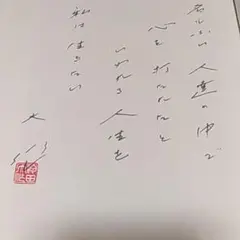 人達の中で
心を打たれたと
いわれる人生を
私は生きたい
大